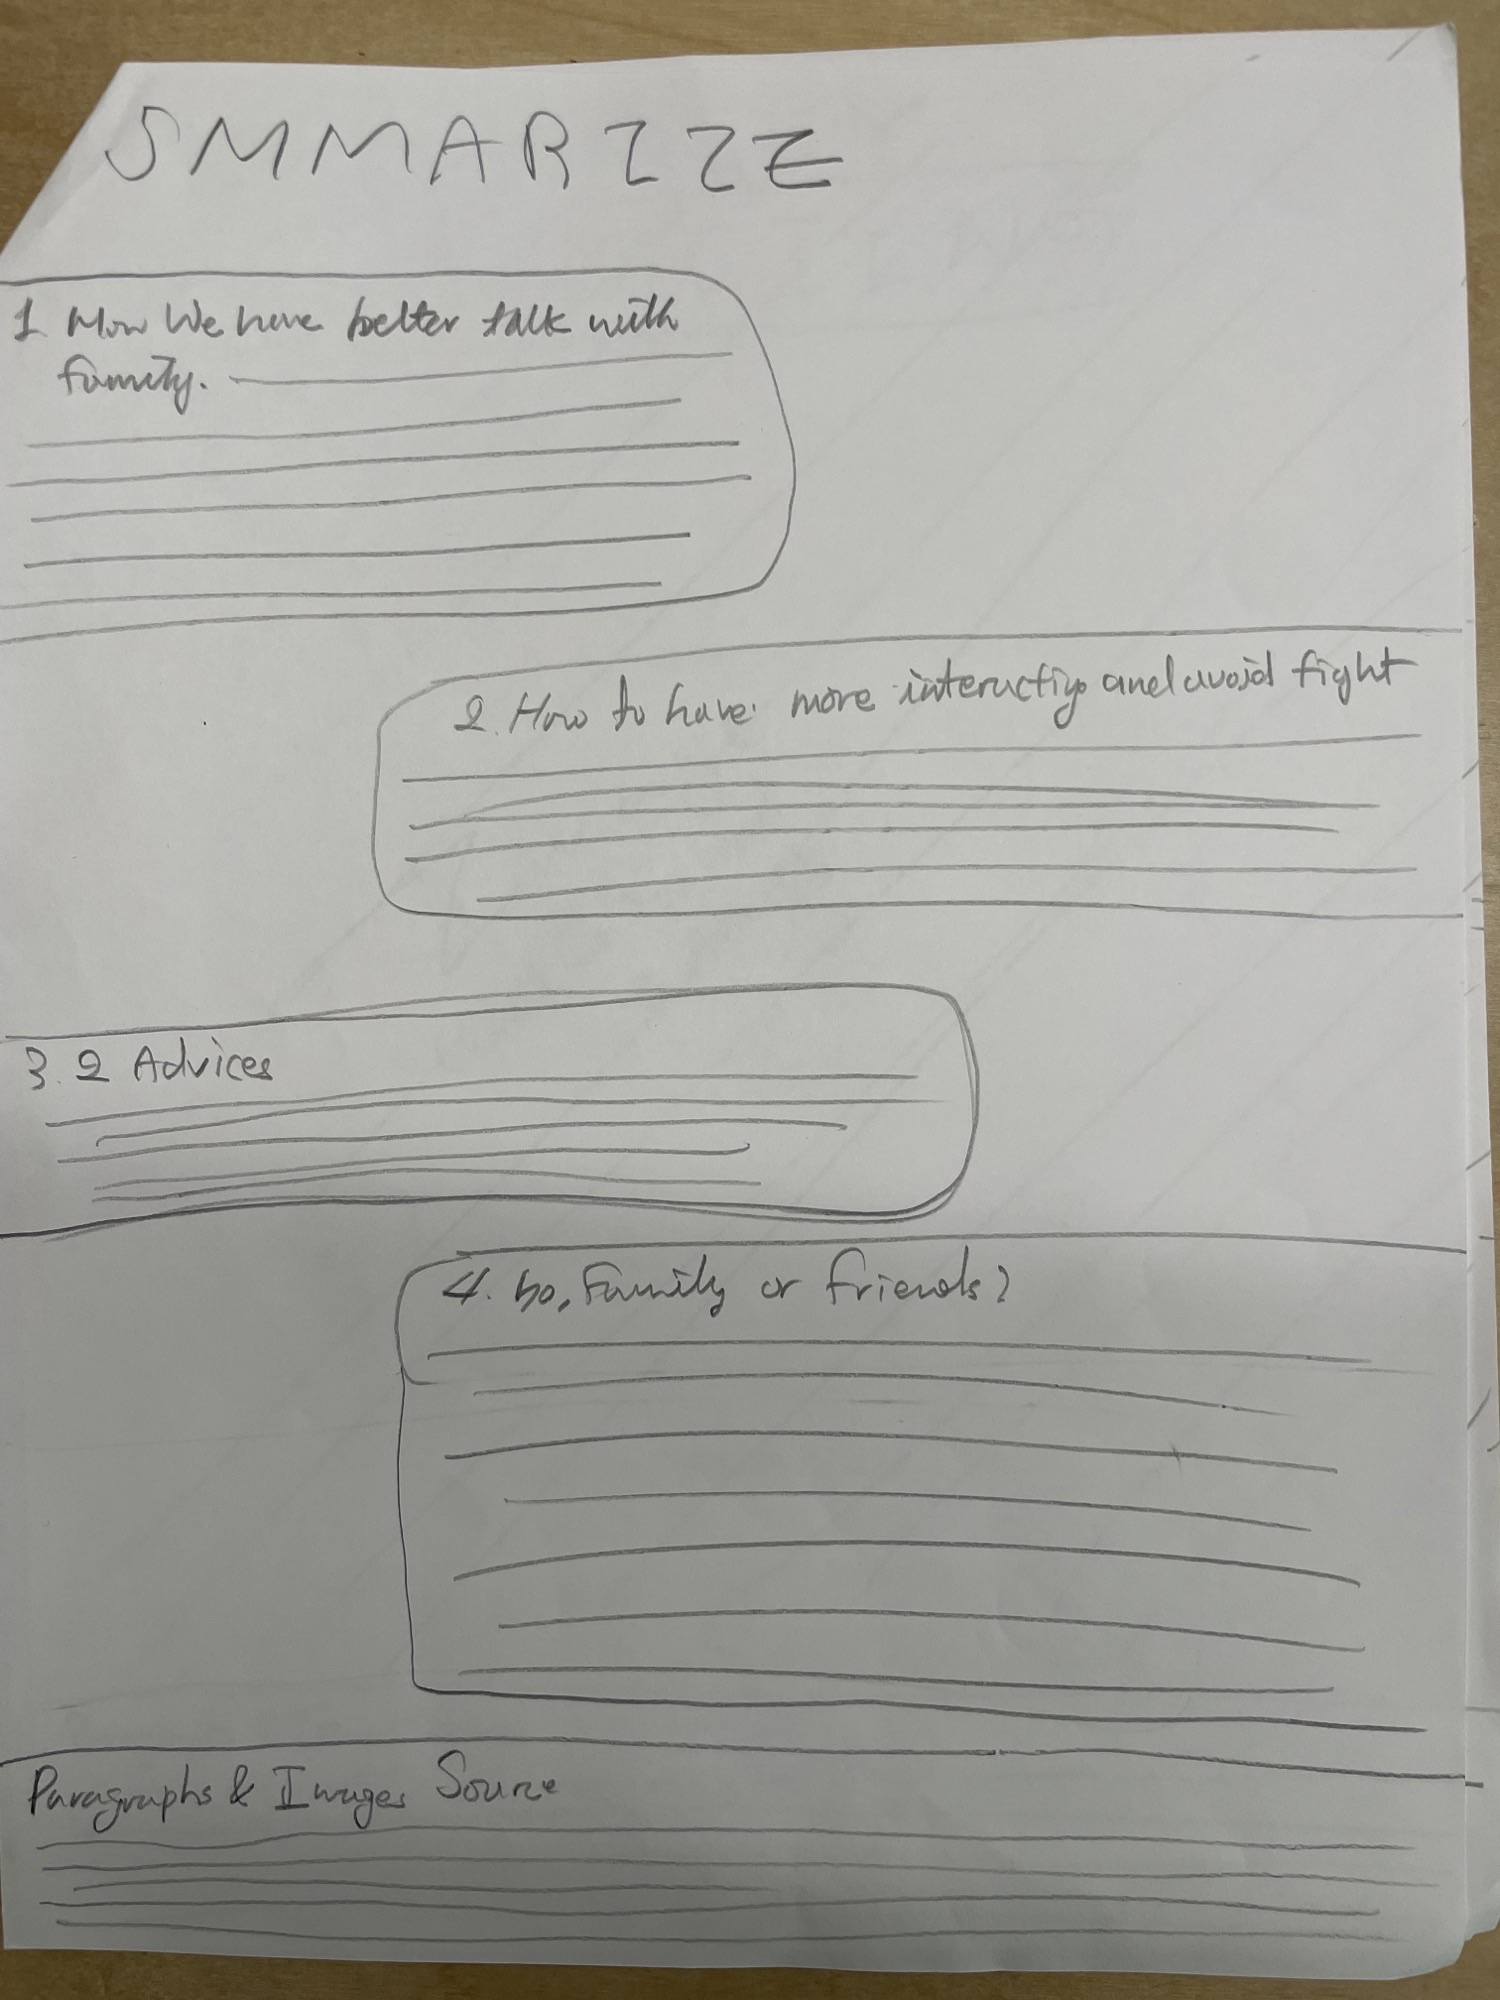 SMMARIZE
1. How We have better talk with
family.
2. How to have more interactip and avoid fight
3. 2 Advices
4. So, Family or friends?
Paragraphs & Images Source